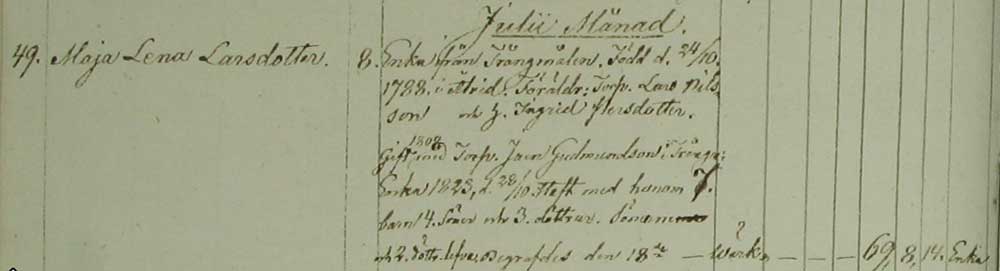 Julii Månad.
49. Maja Lena Larsdotter. 8. Enka från Trångmålen. Född d. 24/10.
1788. i Åtrid. Föräldr: Torp. Lars Nils-
son och H. Ingrid Persdotter.
Gift 1808 med Torp. Jaen Gudmundson i Trångm:
Enka 1823, d. 28/10. Haft med honom 7.
barn 4. Söner och 3. döttrar. Sönerna
och 2. döttr. lefva, Begrafdes den 18de — Wärk. — — — 69, 8, 14. Enka